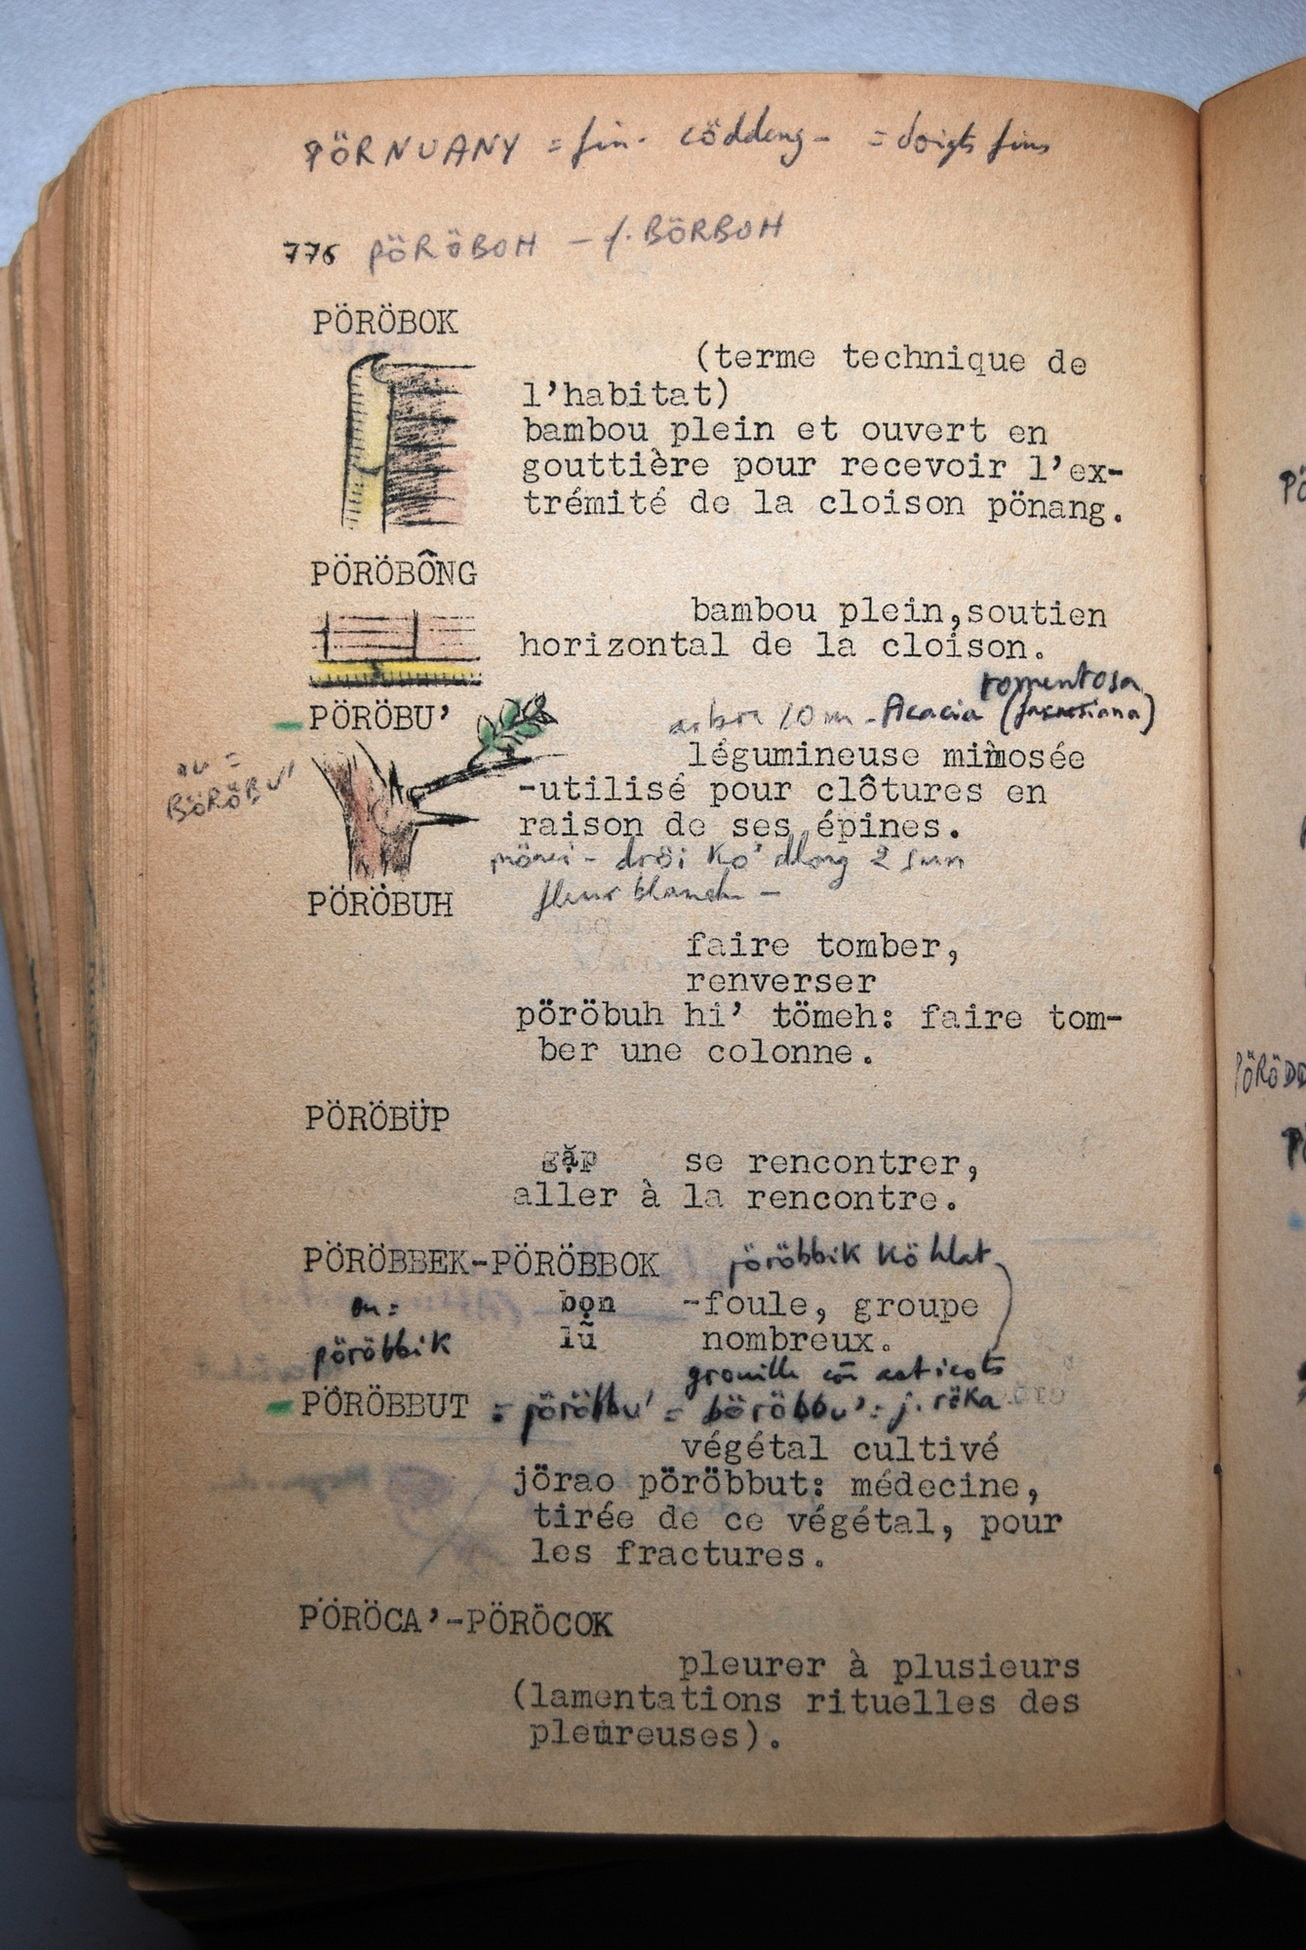 PÖRNUANY = fin. cöddeng - = doigts fins
776 PÖRÖBOH - f. BÖRBOH
PÖRÖBOK
(terme technique de
l'habitat)
bambou plein et ouvert en
gouttière pour recevoir l'ex-
trémité de la cloison pönang.
PÖRÖBÔNG
bambou plein,soutien
horizontal de la cloison.
tomentosa
PÖRÖBU' arbre 10 m - Acacia (farnesiana)
ou =
BÖRÖBU'
légumineuse mimosée
-utilisé pour clôtures en
raison de ses épines.
dröi ko' dlong 2
fleur blanche -
PÖRÖBUH
faire tomber,
renverser
pöröbuh hi' tömeh: faire tom-
ber une colonne.
PÖRÖBÜP
gặp se rencontrer,
aller à la rencontre.
PÖRÖBBEK-PÖRÖBBOK pöröbbik kö hlat
ou = bọn -foule, groupe
pöröbbik lũ nombreux.
grouille asticots
PÖRÖBBUT = pöröbbu' = böröbbu' = j. röka
végétal cultivé
jörao pöröbbut: médecine,
tirée de ce végétal, pour
les fractures.
PÖRÖCA'-PÖRÖCOK
pleurer à plusieurs
(lamentations rituelles des
pleureuses).
PÖRÖDD